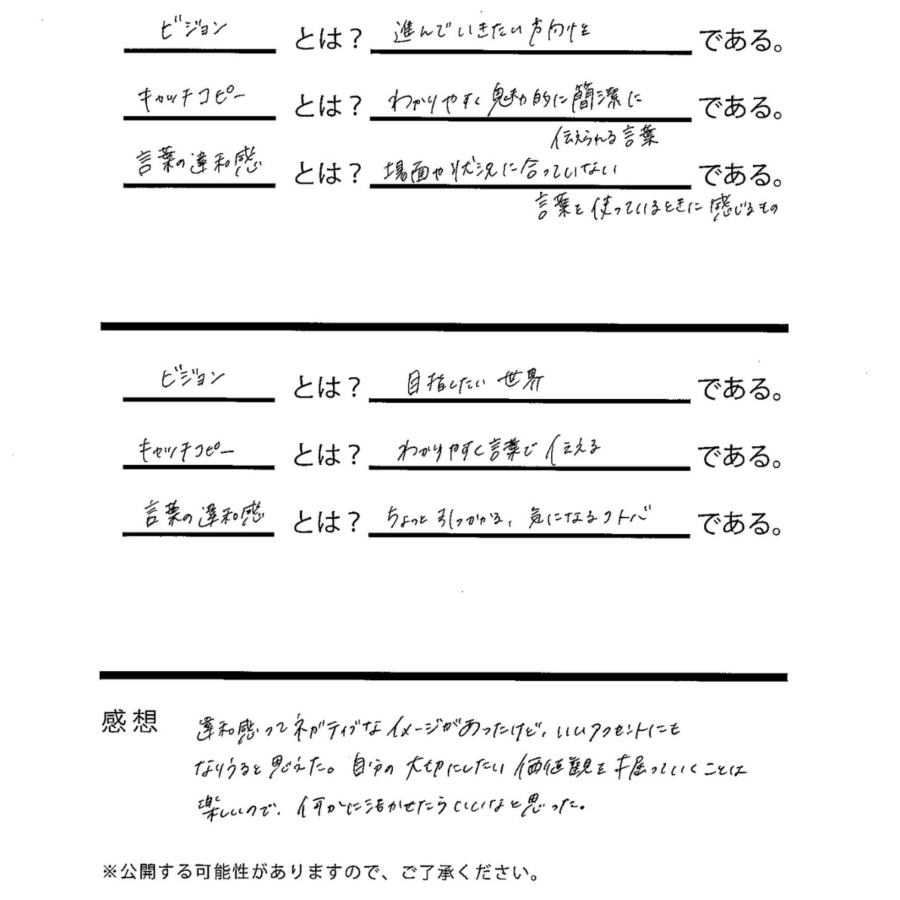 ビジョン とは? 進んでいきたい方向性 である。
キャッチコピー とは? わかりやすく魅力的に簡潔に である。
伝えられる言葉
言葉の違和感 とは? 場面や状況に合っていない である。
言葉を使っているときに感じるもの
ビジョン とは? 目指したい世界 である。
キャッチコピー とは? わかりやすく言葉で伝える である。
言葉の違和感 とは? ちょっと引っかかる、気になるコトバ である。
感想 違和感ってネガティブなイメージがあったけど、いいアクセントにも
なりうると思えた。自分の大切にしたい価値観を掘っていくことは
楽しいので、何かに活かせたらいいなと思った。
※公開する可能性がありますので、ご了承ください。